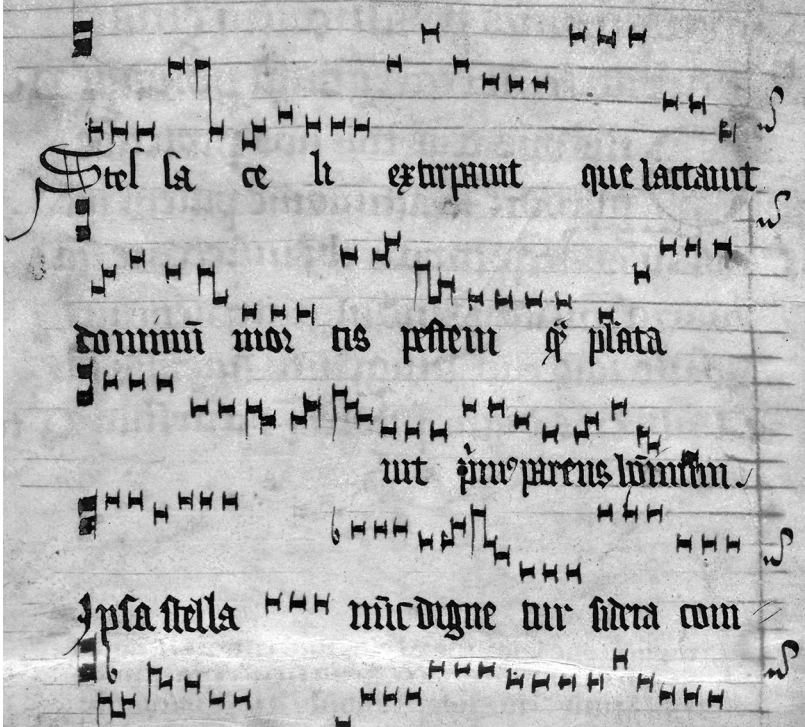 Stel la ce li extirpauit que lactauit
dominū mor tis pestem quā plātā
uit prim parens hominum
Ipsa stella nūc digne tur sidera com